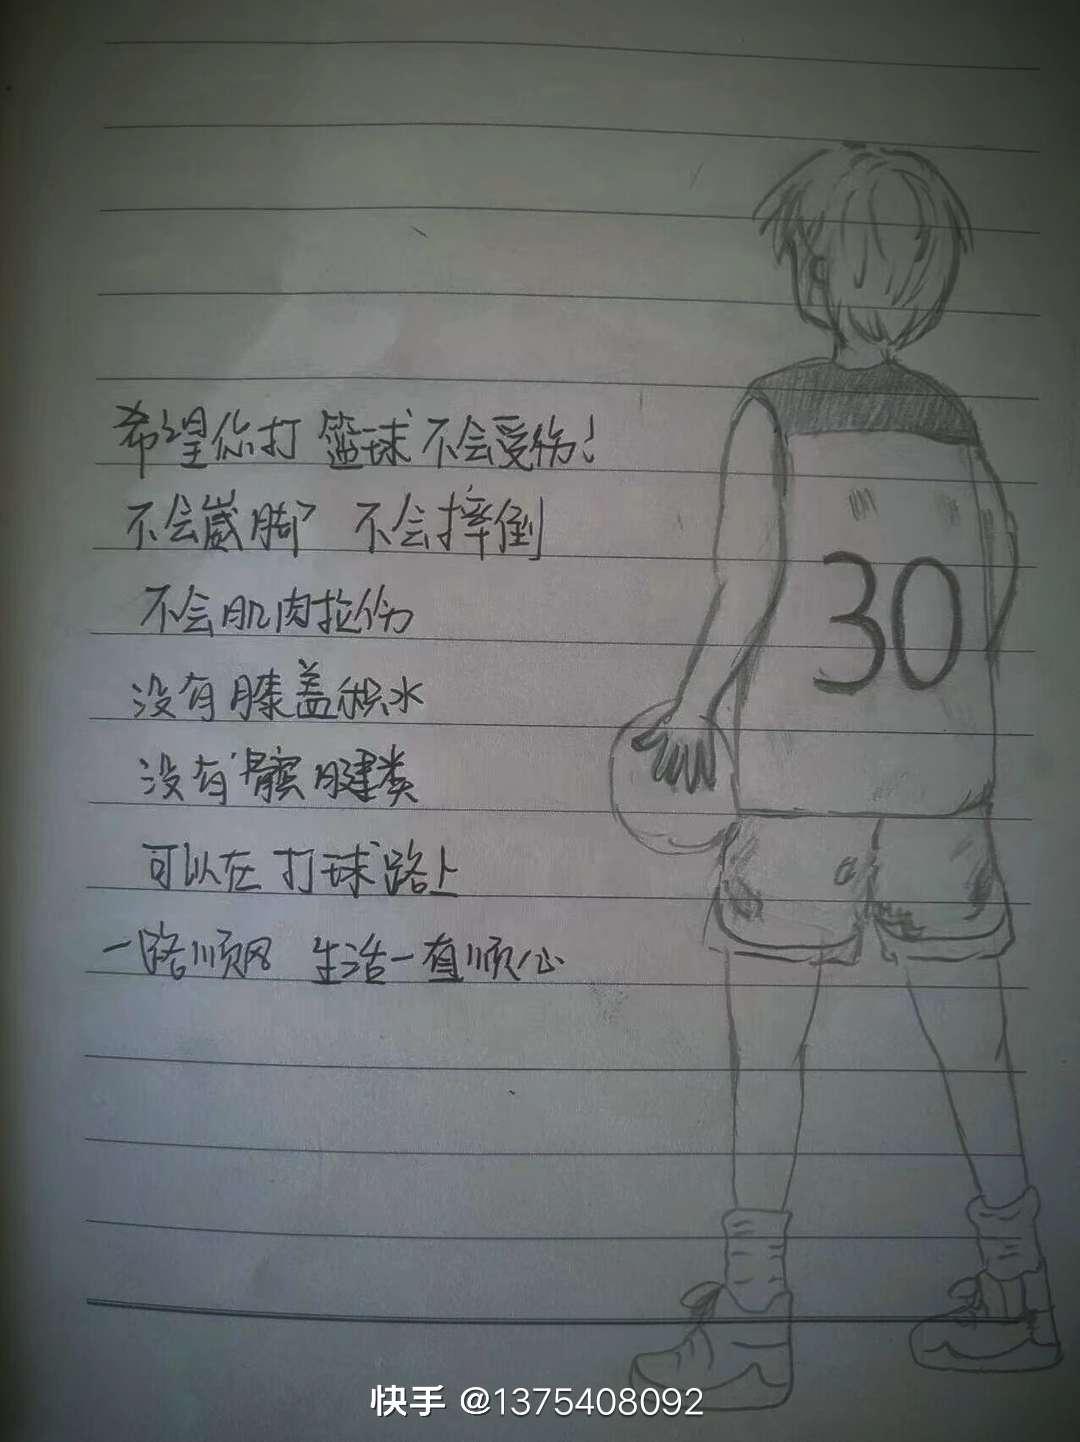 希望你打篮球不会受伤！
不会崴脚 不会摔倒
不会肌肉拉伤
没有膝盖积水
没有髌腱类
可以在打球路上
一路顺风 生活一直顺心
30
快手 @1375408092